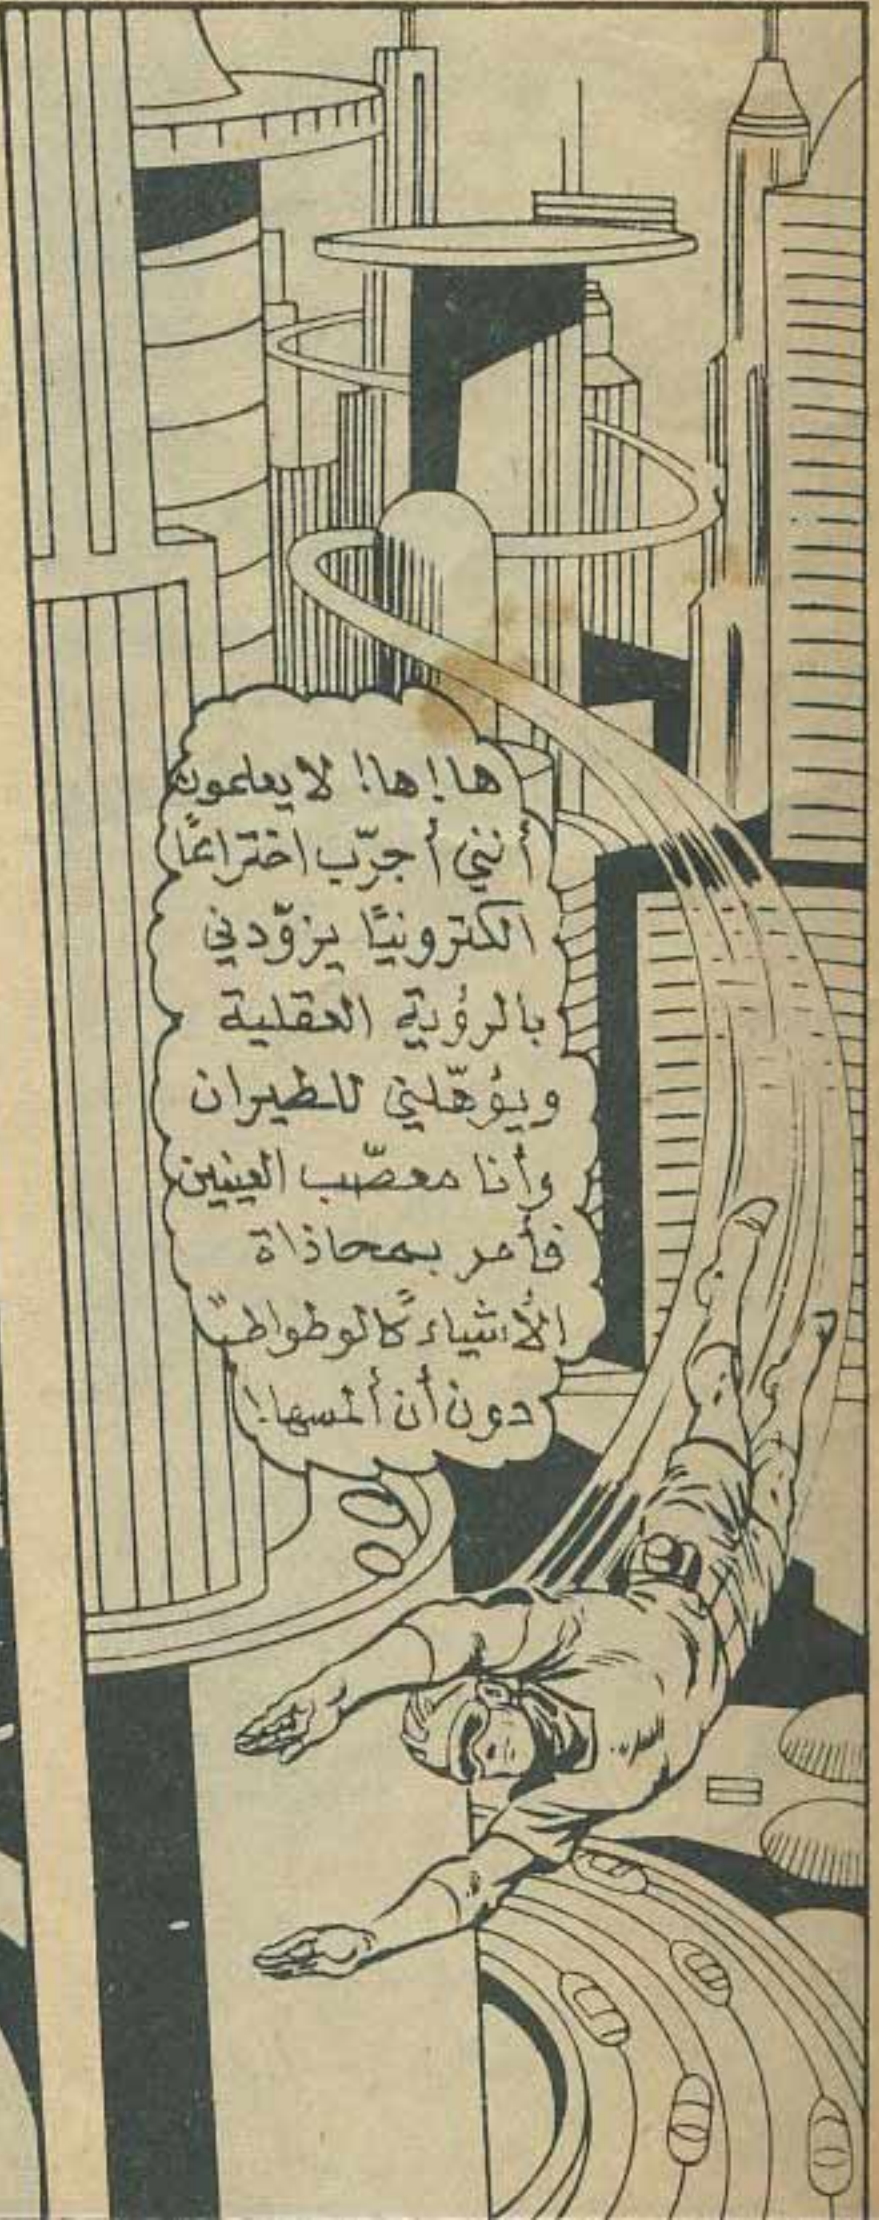 ها! ها! لا يعلمون
أنني أجرّب اختراعًا
الكترونيًا يزوّدني
بالرؤية العقلية
ويؤهّلني للطيران
وأنا معصّب العينين
فأمر بمحاذاة
الأشياء "كالوطواط"
دون أن ألمسها!